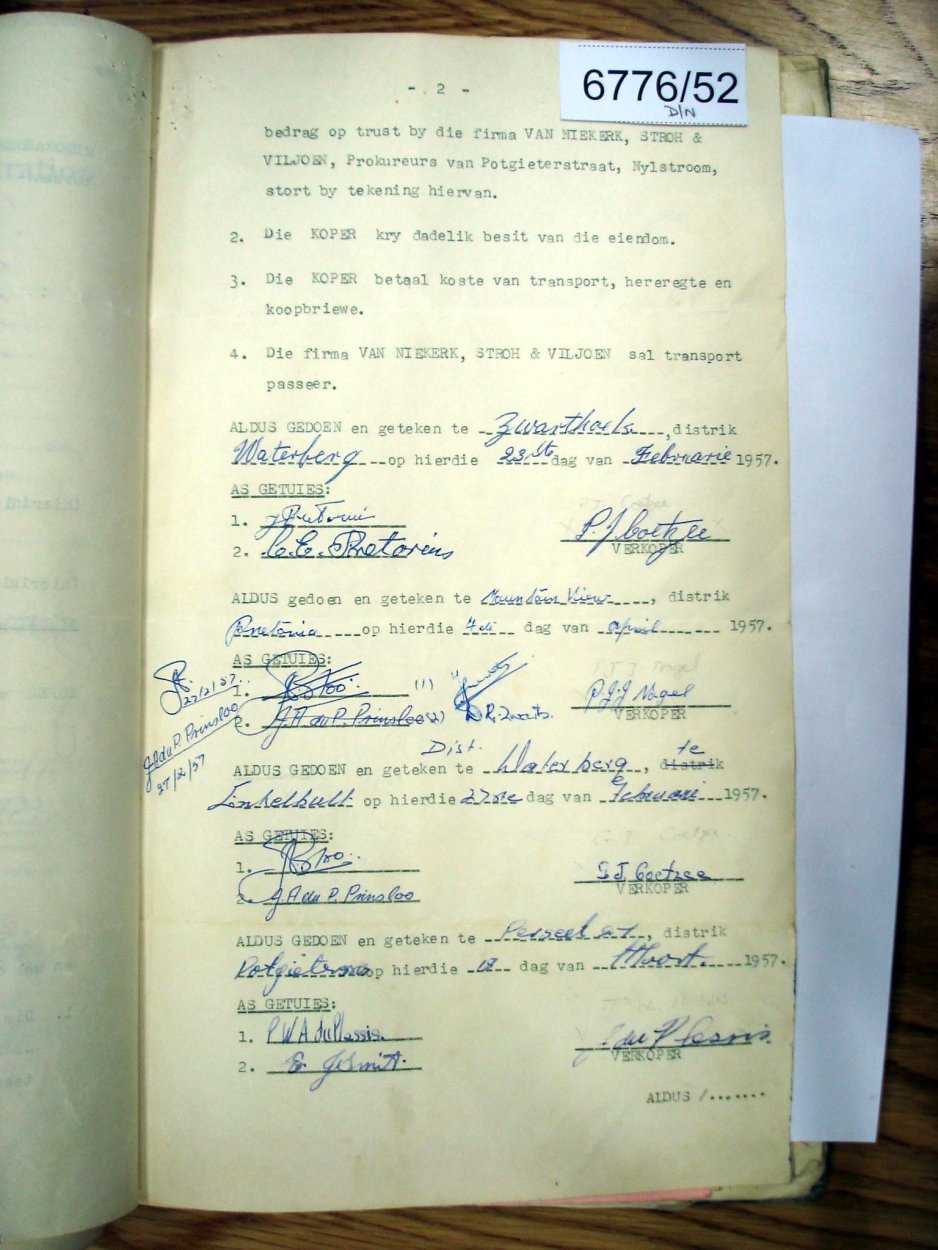 6776/52
D/N
- 2 -
bedrag op trust by die firma VAN NIEKERK, STROH &
VILJOEN, Prokureurs van Potgieterstraat, Nylstroom,
stort by tekening hiervan.
2. Die KOPER kry dadelik besit van die eiendom.
3. Die KOPER betaal koste van transport, hereregte en
koopbriewe.
4. Die firma VAN NIEKERK, STROH & VILJOEN sal transport
passeer.
ALDUS GEDOEN en geteken te Zwarthoek, distrik
Waterberg op hierdie 23ste dag van Februarie 1957.
AS GETUIES:
1.
2. C.E. Pretorius
P.J. Coetzee
P J Coetzee
VERKOPER
ALDUS gedoen en geteken te Mountain View, distrik
Pretoria op hierdie 4de dag van April 1957.
AS GETUIES:
1. (1)
2. J.A du P. Prinsloo (2)
P.J.J Nagel
P.J.J Nagel
VERKOPER
27/2/57
J.A du P. Prinsloo
27/2/57
Dist. te
ALDUS GEDOEN en geteken te Waterberg, distrik
op hierdie 27ste dag van Februarie 1957.
AS GETUIES:
1.
2. J.A du P. Prinsloo
G J Coetzee
G J Coetzee
VERKOPER
ALDUS GEDOEN en geteken te Perseel 87, distrik
Potgietersrus op hierdie 18 dag van Maart 1957.
AS GETUIES:
1. P.W.A du Plessis
2. E. J. Smit
J du Plessis
VERKOPER
ALDUS /.......